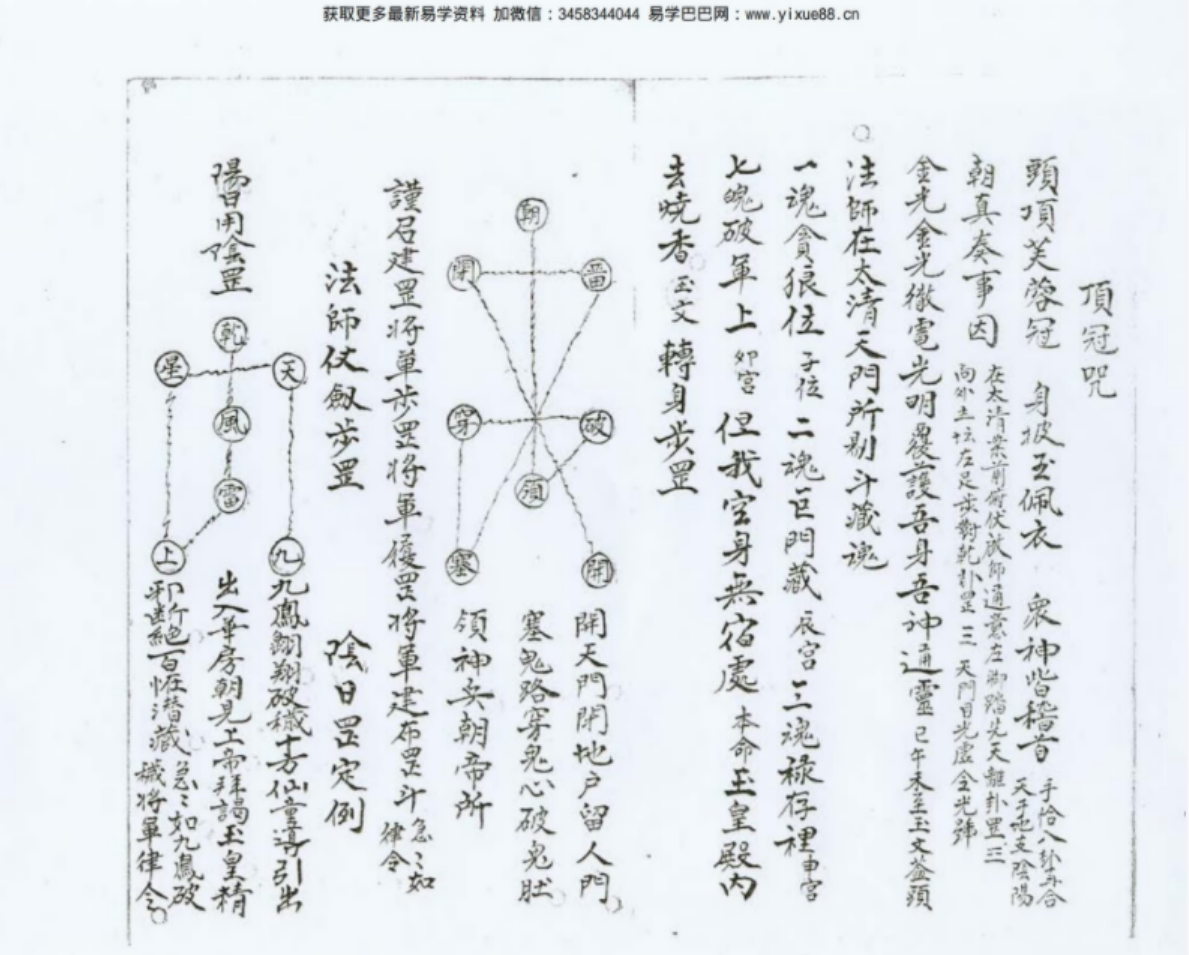 获取更多最新易学资料 加微信：3458344044 易学巴巴网：www.yixue88.cn
頂冠咒
頭頂芙蓉冠 身披玉佩衣 衆神皆稽首 手恰八卦再合
天干地支陰陽
朝真奏事因 在太清案前俯伏啟師通意左脚踏先天離卦罡三
向外主坛左足步對乾卦罡三 天門目光虚金光
金光金光徹電光明覆護吾身吾神通靈 巳午未至玉文蓋頭
法師在太清天門所剔斗藏魂
一魂貪狼位 子位 二魂巨門藏 辰宮 三魂禄存裡 申宮
七魄破軍上 卯宮 但我空身無宿處 本命玉皇殿内
去燒香 玉文 轉身步罡
朝
開 畄
穿 破
須
塞 開
開天門閉地户留人門
塞鬼路穿鬼心破鬼肚
領神兵朝帝所
謹召建罡将軍步罡将軍履罡将軍建布罡斗 急〻如律令
法師仗劍步罡 陰日罡定例
陽日用陰罡
乾
星 天
風
雷
上 九
九鳳翺翔破穢十方仙童導引出
出入華房朝見上帝拜謁玉皇精
邪斷絕百怪潜藏 急〻如九鳳破
穢将軍律令